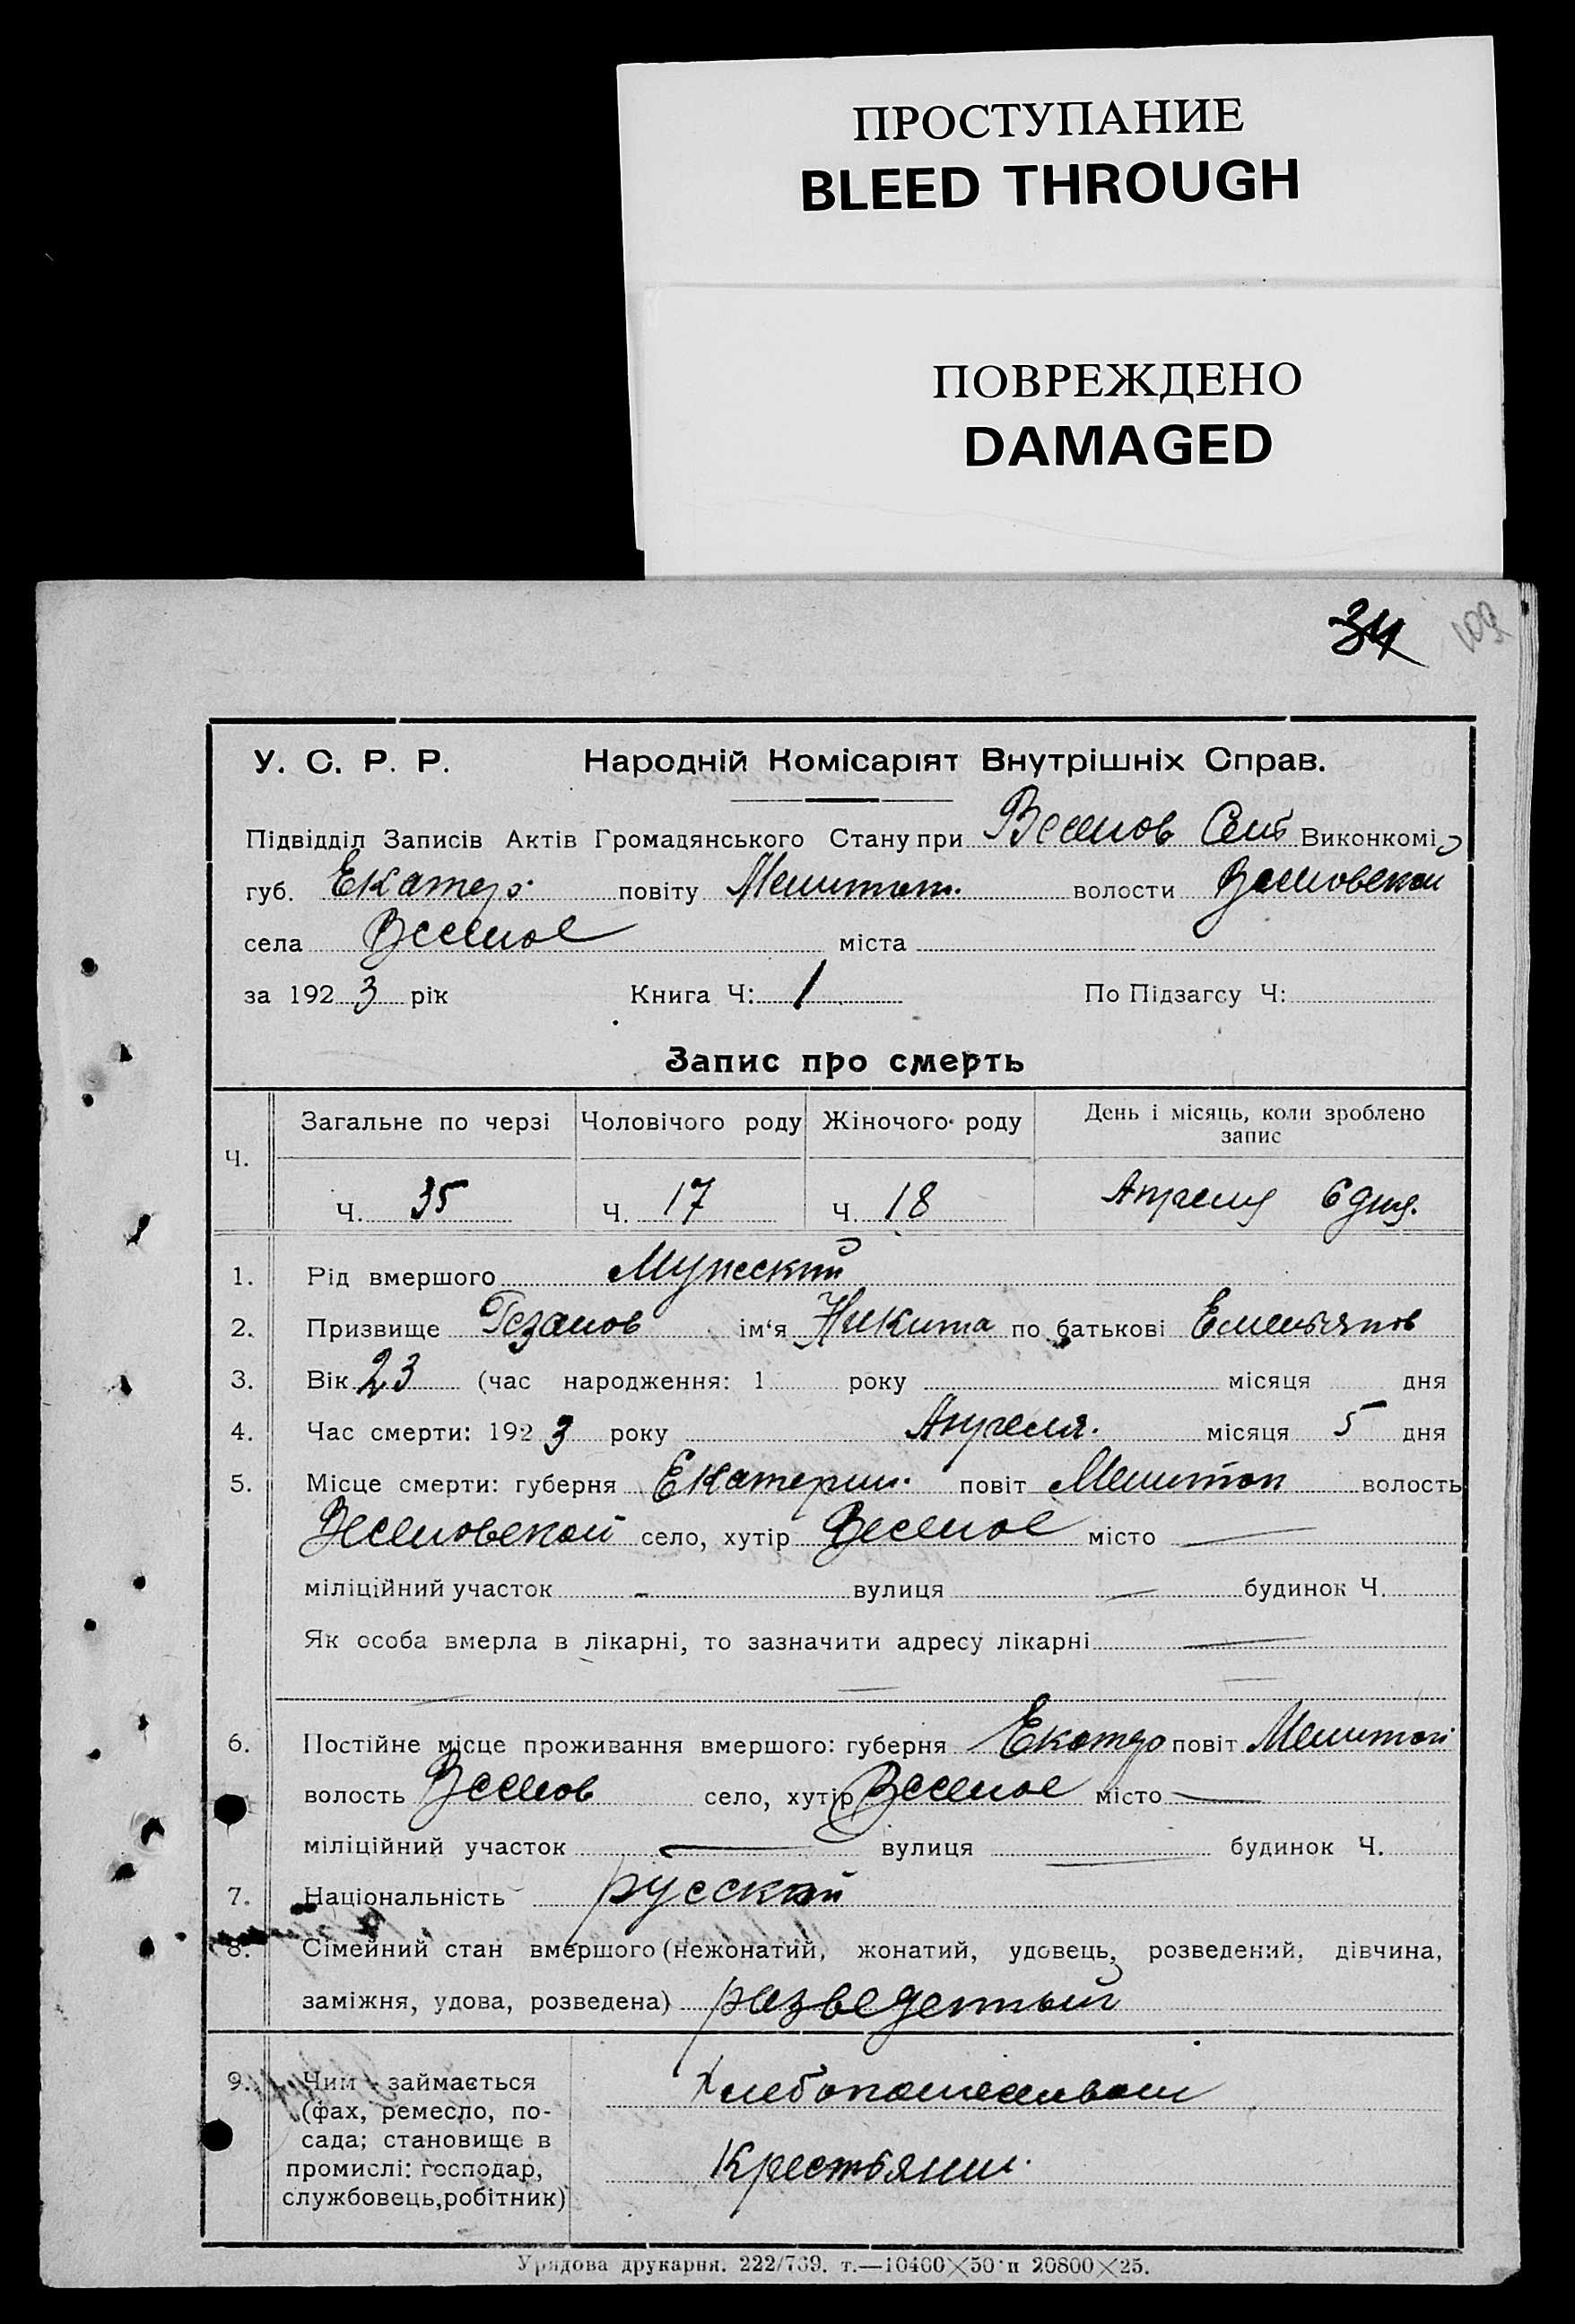 ПРОСТУПАНИЕ
BLEED THROUGH
ПОВРЕЖДЕНО
DAMAGED
34 109
У. С. Р. Р. Народній Комісаріят Внутрішніх Справ.
Підвідділ Записів Актів Громадянського Стану при Веселов Сель Виконкомі
губ. Екатер. повіту Мелитоп. волости Веселовской
села Веселое міста
за 1923 рік Книга Ч: 1 По Підзагсу Ч:
Запис про смерть
Ч. Загальне по черзі Чоловічого роду Жіночого роду День і місяць, коли зроблено запис
Ч. 35 Ч. 17 Ч. 18 Апреля 6 дня.
1. Рід вмершого Мужеский
2. Призвище ім'я Никита по батькові Емельянов
3. Вік 23 (час народження: 1 року місяця дня
4. Час смерти: 1923 року Апреля. місяця 5 дня
5. Місце смерти: губерня Екатерин. повіт Мелитоп волость
Веселовской село, хутір Веселое місто —
міліційний участок - вулиця — будинок Ч.
Як особа вмерла в лікарні, то зазначити адресу лікарні —
6. Постійне місце проживання вмершого: губерня Екатер повіт Мелитоп
волость Веселов село, хутір Веселое місто —
міліційний участок — вулиця — будинок Ч.
7. Національність русский
8. Сімейний стан вмершого (нежонатий, жонатий, удовець, розведений, дівчина,
заміжня, удова, розведена) разведенный
9. Чим займається
(фах, ремесло, по-
сада; становище в
промислі: господар,
службовець, робітник)
Крестьянин.
Урядова друкарня. 222/739. т.—10400×50 и 20800×25.